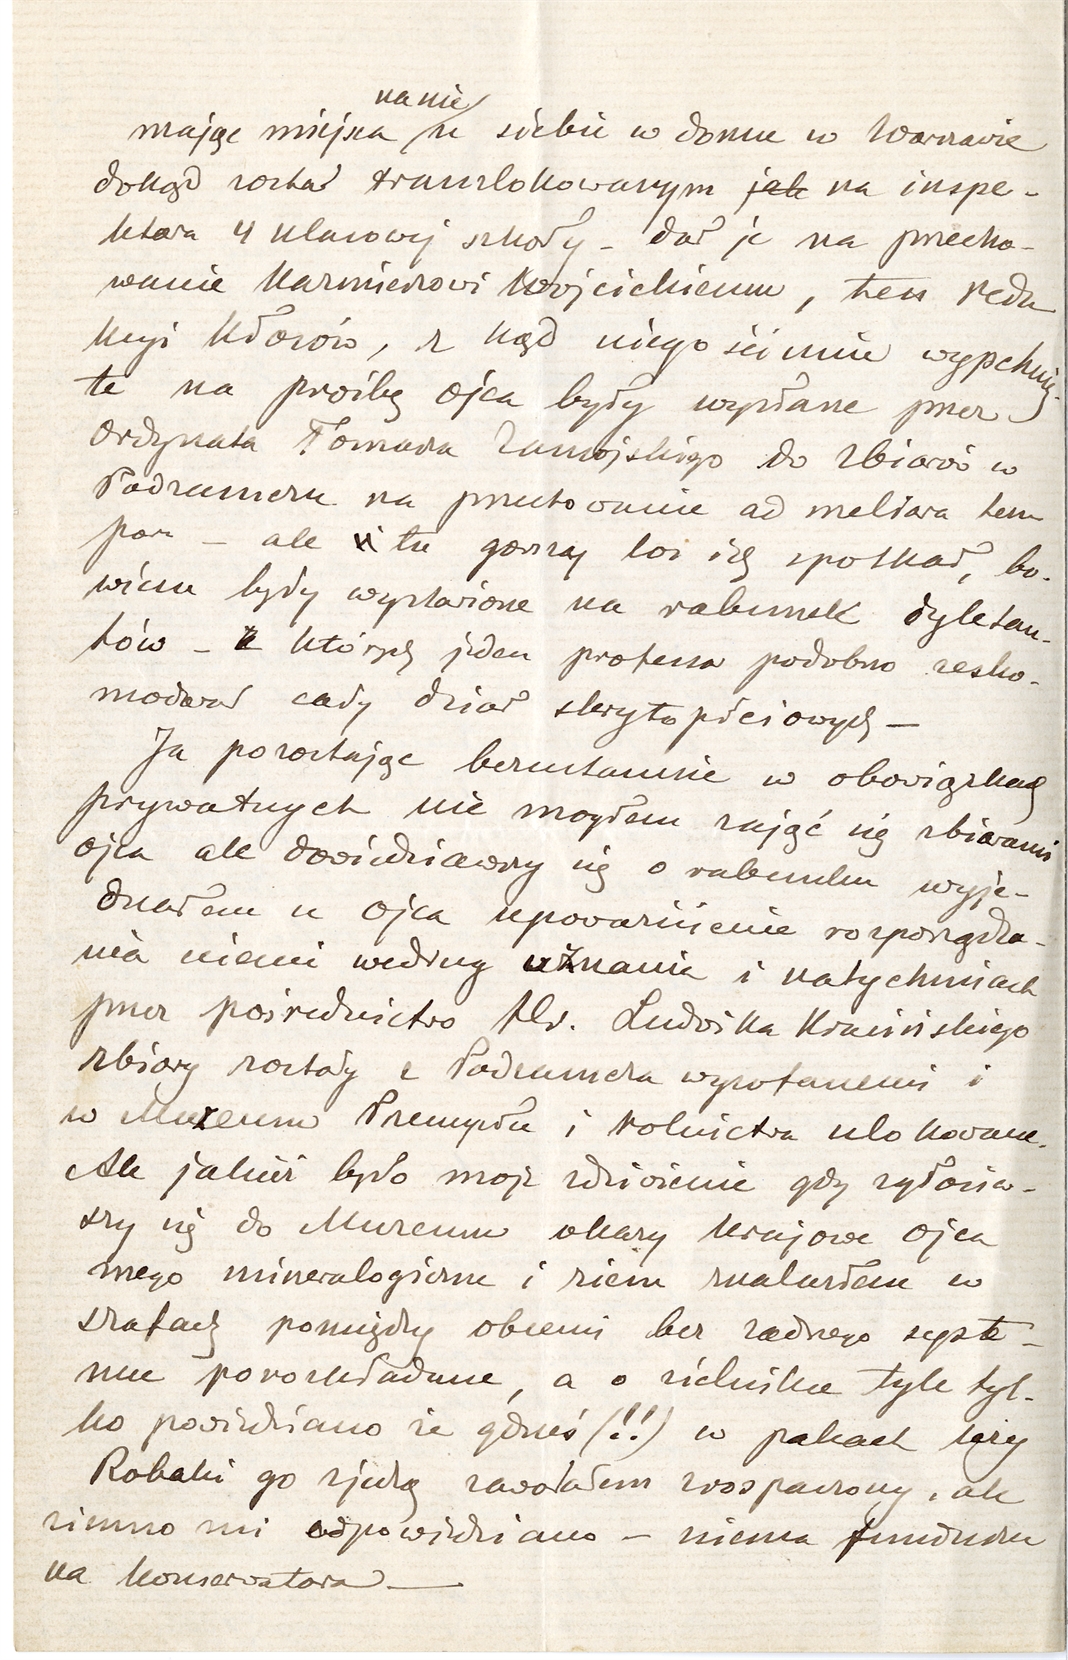 na nie
mając miejsca u siebie w domu w Warszawie
dokąd został translokowanym jak na inspe-
ktora 4 klasowej szkoły – dał je na przecho-
wanie Kazmierzowi Wojcickiemu, ten redak
kcyi Kłosów, z kąd niegościnnie wypchnię-
te na prośbę ojca były wysłane przez
Ordynata Tomasza Zamojskiego do zbiorów w
Podzamczu na przechowanie ad meliora tem
pora – ale i tu gorszy los ich spotkał, bo-
wiem były wystawione na rabunek dyletan-
tów – z których jeden profesor podobno zesko-
modował cały dział skrytopłciowych –
Ja pozostając bezustannie w obowiązkach
prywatnych nie mogłem zająć się zbiorami
ojca ale dowiedziawszy się o rabunku wyje-
dnałem u ojca upoważnienie rozporządza-
nia niemi według uznania i natychmiast
przez pośrednictwo Hr. Ludwika Krasińskiego
zbiory zostały z Podzamcza wycofanemi i
w Muzeum Przemysłu i Rolnictwa ulokowane.
Ale jakież było moje zdziwienie gdy zgłosiw-
szy się do Muzeum okazy krajowe ojca
mego mineralogiczne i ziem znalazłem w
szafach pomiędzy obcemi bez żadnego syste-
mu porozkładane, a o zielniku tyle tyl-
ko powiedziano że gdzieś (!!) w pakach leży
Robaki go zjedzą zawołałem zrospaczony, ale
zimno mi odpowiedziano – niema funduszu
na konserwatora –